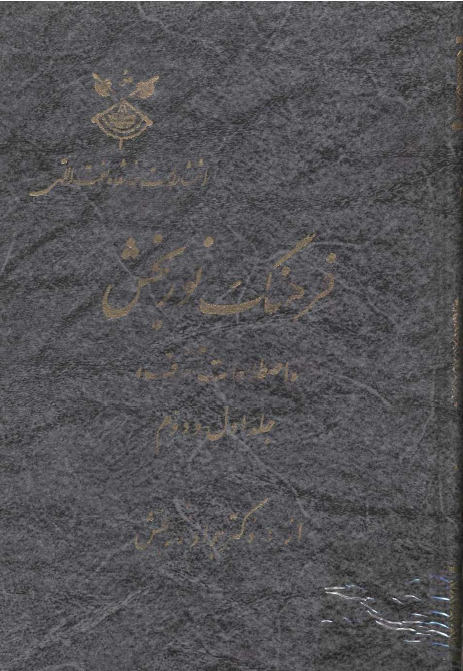 انتشارات خانقاه نعمت اللهی
فرهنگ نوربخش
اصطلاحات تصوف
جلد اول و دوم
از: دکتر جواد نوربخش